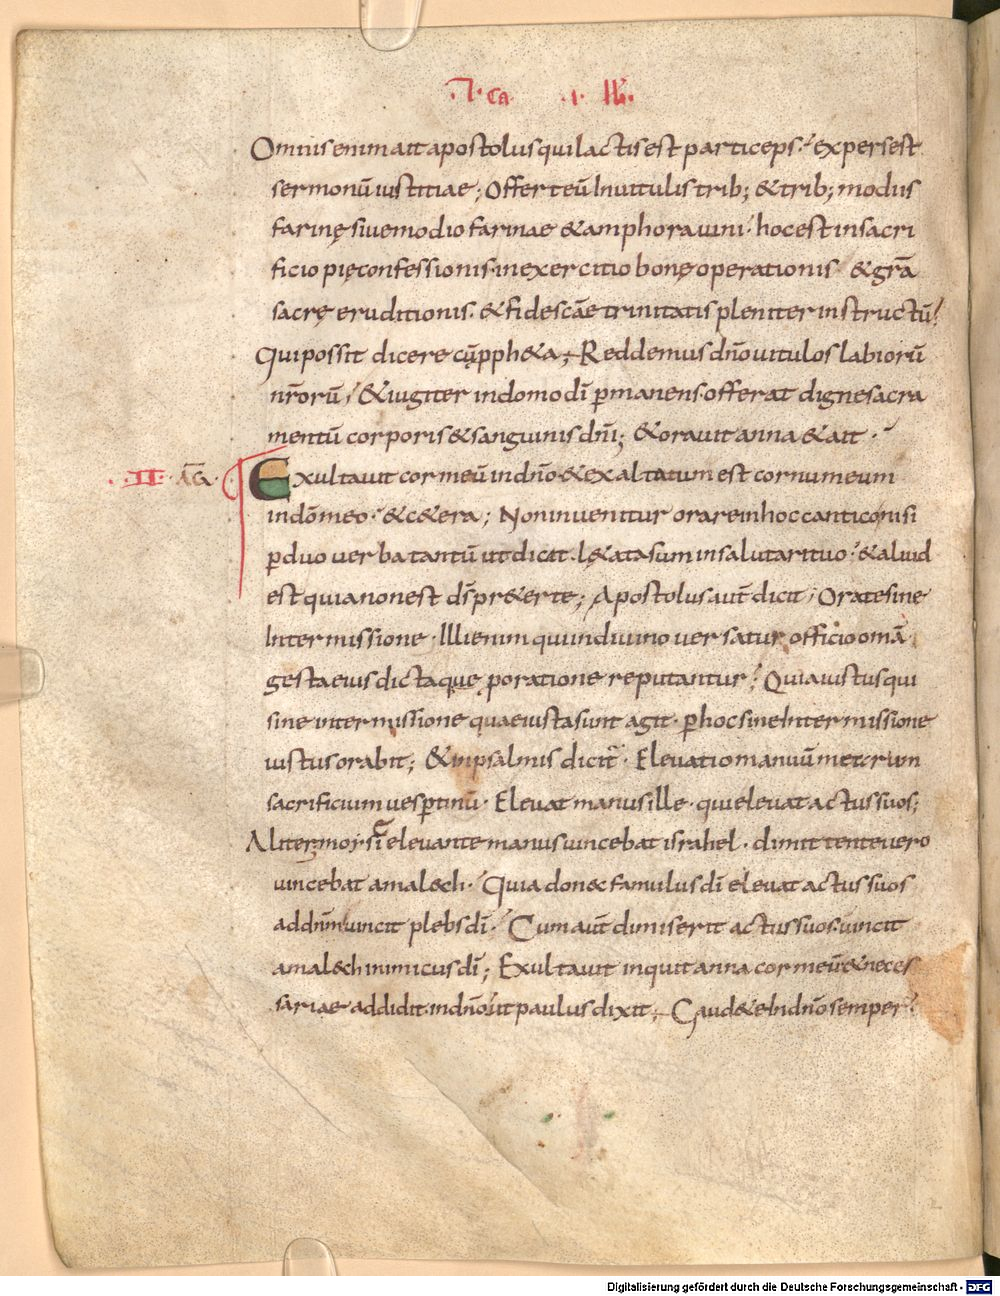 ·I· ca · i · lib·
Omnis enim ait apostolus qui lactis est particeps· expers est
sermonū iustitiae; Offert eū In uitulis trib; & trib; modiis
farinę siue modio farinae & amphora uini· hoc est in sacri
ficio pię confessionis· in exercitio bonę operationis· & grā
sacrę eruditionis· & fide scāe trinitatis pleniter instructū·
Qui possit dicere cū pph&a; Reddemus dn̄o uitulos labiorū
nr̄orū, & iugiter in domo dī ꝑmanens offerat digne sacra
mentū corporis & sanguinis dn̄i; & orauit anna & ait·
·II· Exultauit cor meū in dn̄o & exaltatum est cornu meum
in dō meo· & c&era; Non inuenitur orare in hoc cantico nisi
ꝑ duo uerba tantū ut dicit· l&ata sum in salutari tuo· & aliud
est quia non est dī pr&er te; Apostolus aut̄ dicit, Orate sine
Intermissione· Illi enim qui in diuino uersatur officio omā
gesta eius dictaque ꝑ oratione reputantur· Quia iustus qui
sine intermissione quae iusta sunt agit· ꝑ hoc sine Intermissione
iustus orabit; & in psalmis dicit· Eleuatio manuū mearum
sacrificium uesꝑtinū· Eleuat manus ille· qui eleuat actus suos;
Aliter moysi eleuante manus uincebat israhel· dimittente uero
uincebat amalech· Quia donec famulus dī eleuat actus suos
ad dn̄m uincit plebs dī· Cum aut̄ dimiserit actus suos· uincit
amalech inimicus dī; Exultauit inquit anna cor meū & neces
sariae addidit· in dn̄o· ut paulus dixit; Gaud&e In dn̄o semper·
Digitalisierung gefördert durch die Deutsche Forschungsgemeinschaft - DFG